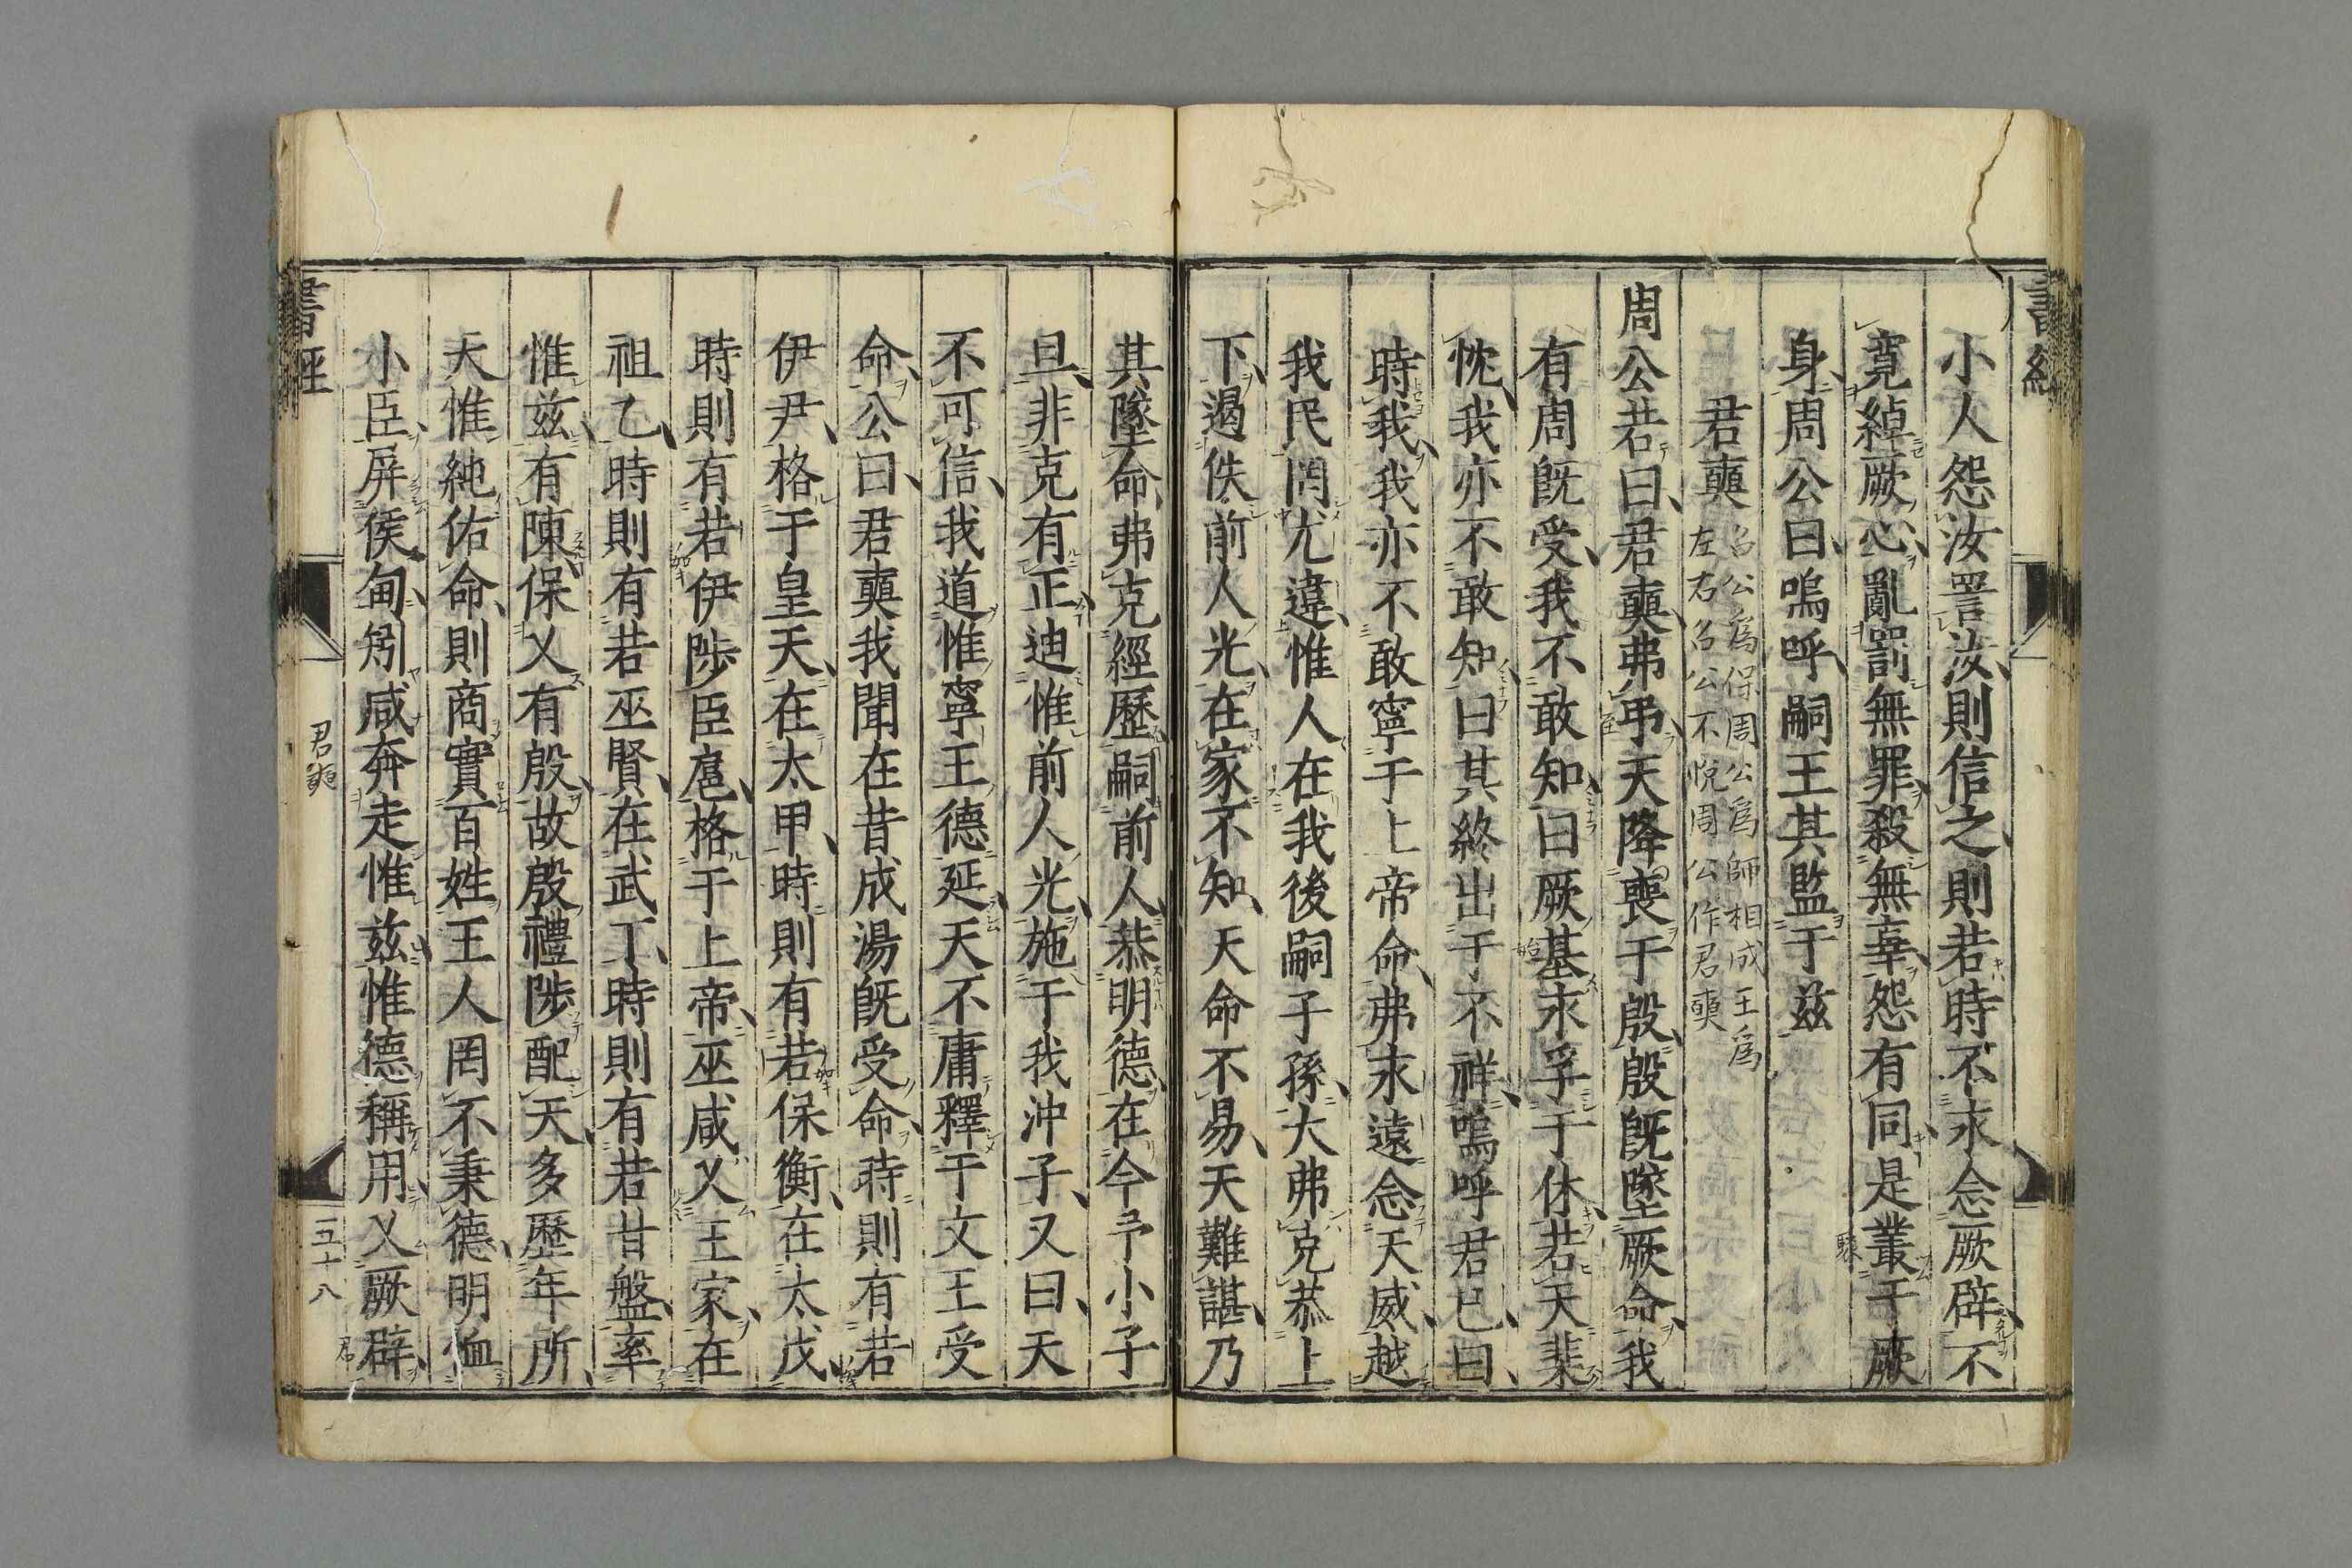 書經
小人怨汝詈汝則信之則若時不永念厥辟不
寛綽厥心亂罰無罪殺無辜怨有同是叢于厥
身周公曰嗚呼嗣王其監于茲
君奭
召公爲保周公爲師相成王爲
左右召公不悅周公作君奭
周公若曰君奭弗弔天降喪于殷殷旣墜厥命我
有周旣受我不敢知曰厥基永孚于休若天棐
忱我亦不敢知曰其終出于不祥嗚呼君已曰
時我我亦不敢寧于上帝命弗永遠念天威越
我民罔尤違惟人在我後嗣子孫大弗克恭上
下遏佚前人光在家不知天命不易天難諶乃
其墜命弗克經歷嗣前人恭明德在今予小子
旦非克有正迪惟前人光施于我沖子又曰天
不可信我道惟寧王德延天不庸釋于文王受
命公曰君奭我聞在昔成湯旣受命時則有若
伊尹格于皇天在太甲時則有若保衡在太戊
時則有若伊陟臣扈格于上帝巫咸乂王家在
祖乙時則有若巫賢在武丁時則有若甘盤率
惟茲有陳保乂有殷故殷禮陟配天多歷年所
天惟純佑命則商實百姓王人罔不秉德明恤
小臣屏侯甸矧咸奔走惟茲惟德稱用乂厥辟
書經
君奭
五十八